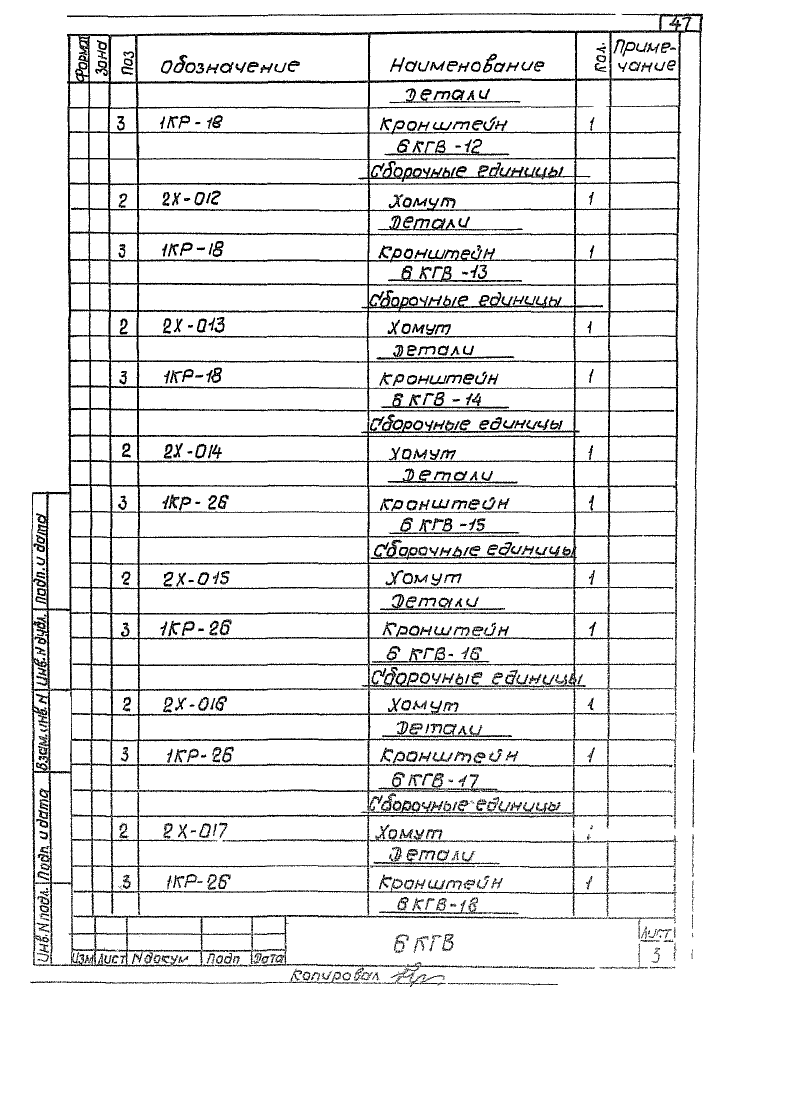 47
Формат Зона Поз Обозначение Наименование Кол. Приме-
чание
Детали
3 1КР-18 Кронштейн 1
6 КГВ -12
Сборочные единицы
2 2Х-012 Хомут 1
Детали
3 1КР-18 Кронштейн 1
6 КГВ -13
Сборочные единицы
2 2Х-013 Хомут 1
Детали
3 1КР-18 Кронштейн 1
6 КГВ -14
Сборочные единицы
2 2Х-014 Хомут 1
Детали
3 1КР-26 Кронштейн 1
6 КГВ -15
Сборочные единицы
2 2Х-015 Хомут 1
Детали
3 1КР-26 Кронштейн 1
6 КГВ-16
Сборочные единицы
2 2Х-016 Хомут 1
Детали
3 1КР-26 Кронштейн 1
6 КГВ-17
Сборочные единицы
2 2Х-017 Хомут
Детали
3 1КР-26 Кронштейн 1
6 КГВ-18
Инв.N подл. Подп. и дата Взам.инв.N Инв.N дубл. Подп. и дата
Изм Лист N докум Подп Дата
6 КГВ
Лист
3
Копировал